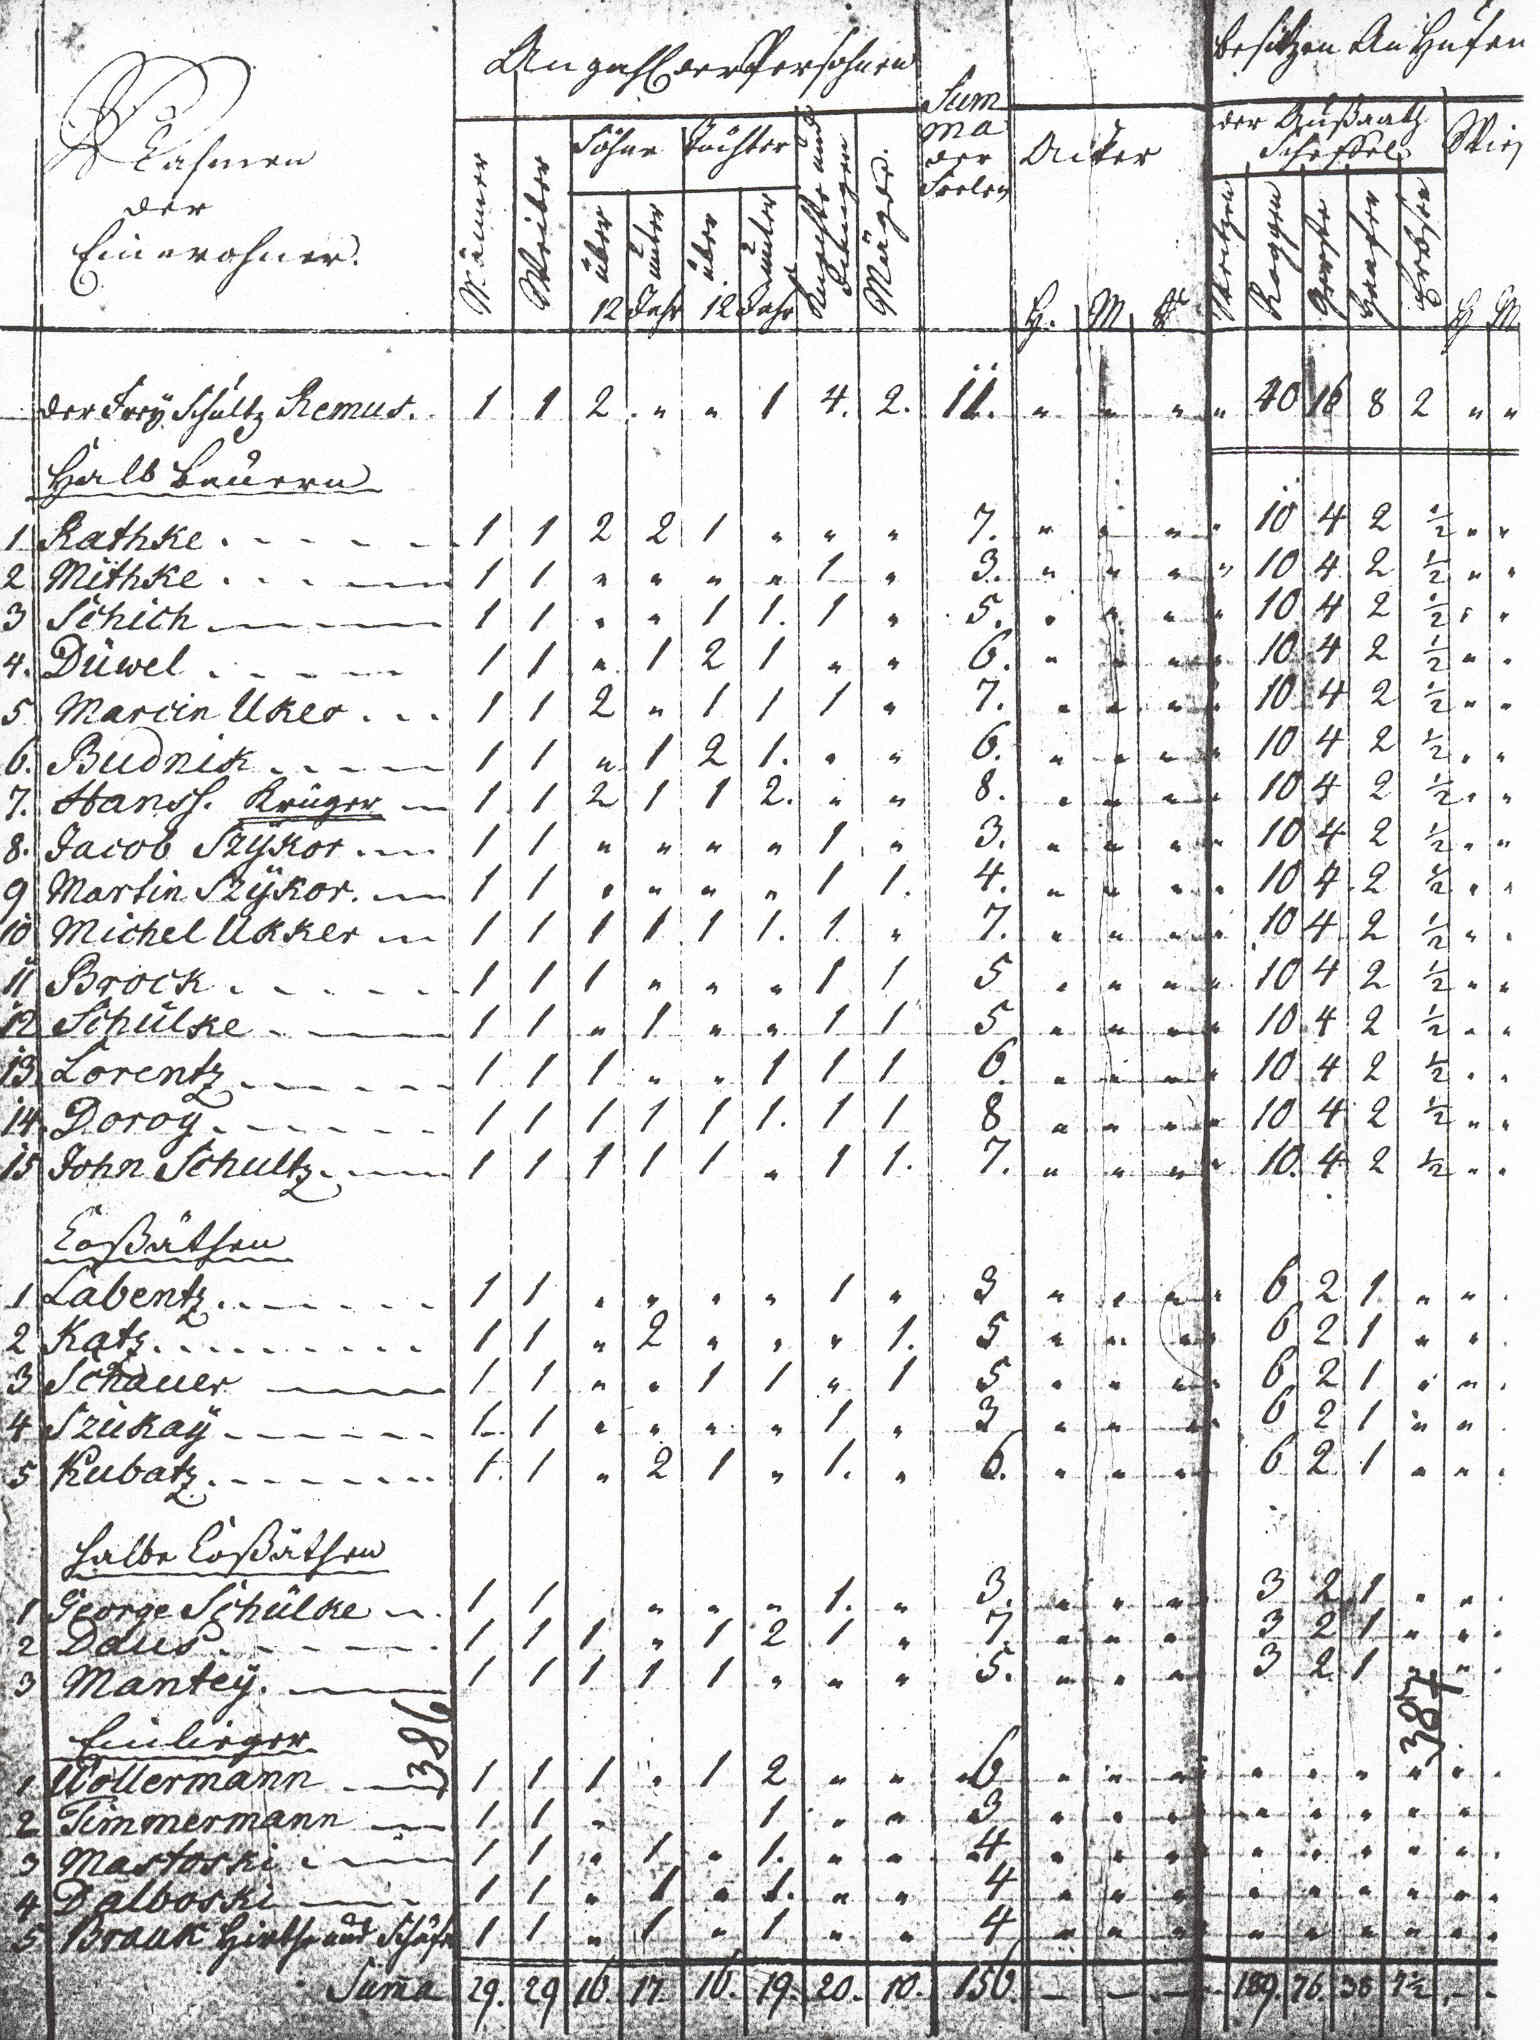 Anzahl der Persohnen
besitzen An Hufen
Nahmen
der
Einwohner.
Männer
Weiber
Söhne
Töchter
über
unter
über
unter
12 Jahr
12 Jahr
Knechte und Jungen
Mägde.
Sum
ma
der
Seelen
Acker
H. M. R
der Außaath
Scheffel
Weitzen
Roggen
Gerste
Haafer
Erbsen
Wies
H M
der Frey Schultz Remus. 1 1 2 " " 1 4. 2. 11. " " " " 40 16 8 2 " "
Halb bauern
1 Rathke 1 1 2 2 1 " " " 7. " " " " 10 4 2 ½ " "
2 Mithke 1 1 " " " " 1 " 3. " " " " 10 4 2 ½ " "
3 Schich 1 1 " " 1 1. 1 " 5. " " " " 10 4 2 ½ " "
4. Düwel 1 1 " 1 2 1 " " 6. " " " " 10 4 2 ½ " "
5 Marcin Uker 1 1 2 " 1 1 1 " 7. " " " " 10 4 2 ½ " "
6. Budnik 1 1 " 1 2 1. " " 6. " " " " 10 4 2 ½ " "
7. Hanss. Krüger 1 1 2 1 1 2. " " 8. " " " " 10 4 2 ½ " "
8. Jacob Szÿkor 1 1 " " " " 1 " 3. " " " " 10 4 2 ½ " "
9 Martin Szÿkor. 1 1 " " " " 1 1. 4. " " " " 10 4 2 ½ " "
10 Michel Ukker 1 1 1 1 1 1. 1. " 7. " " " " 10 4 2 ½ " "
11 Brock 1 1 1 " " " 1 1 5 " " " " 10 4 2 ½ " "
12 Schülke 1 1 " 1 " " 1 1 5 " " " " 10 4 2 ½ " "
13. Lorentz 1 1 1 " " 1 1 1 6. " " " " 10 4 2 ½ " "
14. Doroy 1 1 1 1 1 1. 1 1 8 " " " " 10 4 2 ½ " "
15 John Schultz. 1 1 1 1 1 " 1 1. 7. " " " " 10. 4 2 ½ " "
Coßäthen
1 Labentz 1 1 " " " " 1 " 3 " " " " 6 2 1. " " "
2 Katz 1 1 " 2 " " " 1. 5 " " " " 6 2 1 " " "
3 Schauer 1 1 " " 1 1 " 1 5 " " " " 6 2 1 " " "
4 Szükaÿ 1. 1 " " " " 1 " 3 " " " " 6 2 1 " " "
5 Kubatz 1. 1 " 2 1 " 1. " 6. " " " " 6 2 1 " " "
halbe Coßäthen
1 George Schülke 1 1 " " " 1. " 3. " " " " 3 2 1 " " "
2 Daus 1 1 1. " 1 2 1 " 7. " " " 3 2 1 " " "
3 Mantey. 1 1 1 1 1 " " " 5. " " " 3 2 1 " " "
386
387
Einlieger
1 Wollermann 1 1 1 " 1 2 " " 6 " " " " " " " " " "
2 Timmermann 1 1 " 1 " " 3 " " " " " " " " " "
3 Mastoski 1 1 " 1 " 1. " " 4 " " " " " " " " " "
4 Dalboski 1 1 " 1 " 1. " " 4 " " " " " " " " " "
5 Braak Hirthe und Schäfr 1 1 " 1 " 1 " " 4 " " " " " " " " " "
Suma 29. 29 16. 17. 16. 19. 20. 10. 156. 189. 76. 38 9½